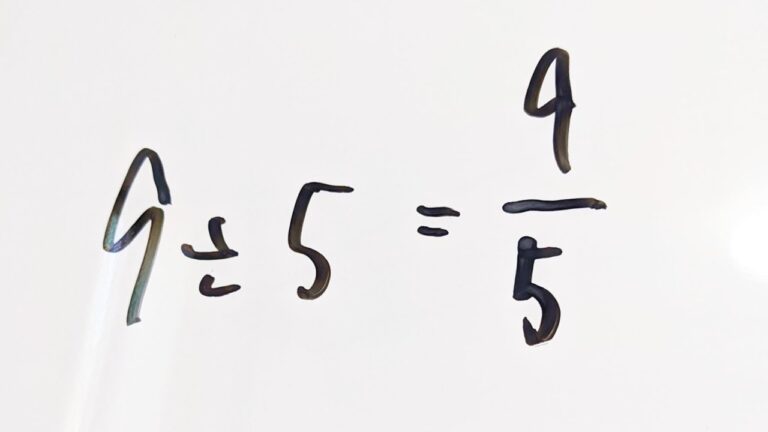 9 ÷ 5 = 9/5